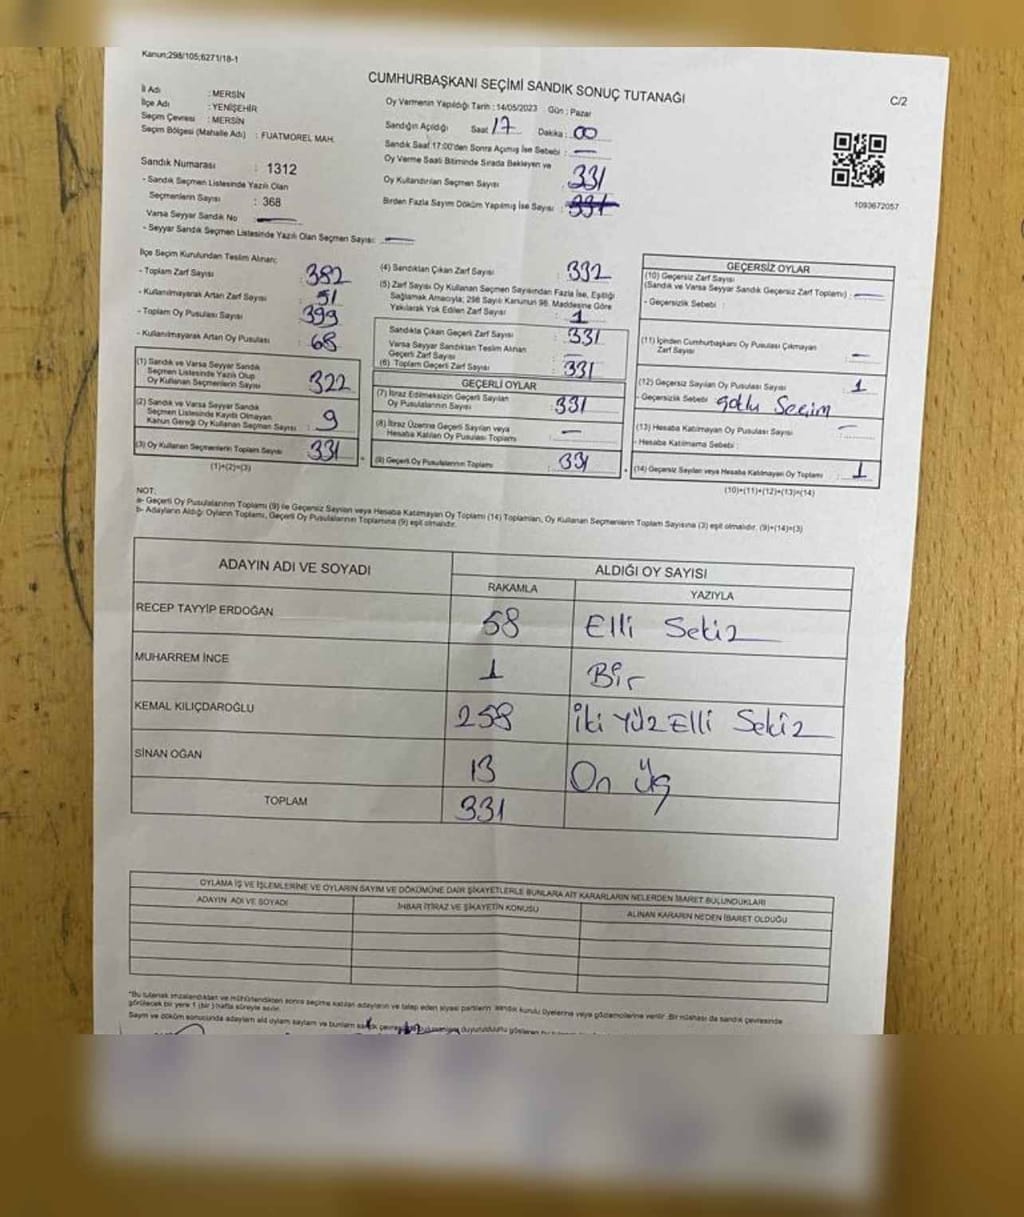 Kanun;298/105;6271/18-1
CUMHURBAŞKANI SEÇİMİ SANDIK SONUÇ TUTANAĞI
C/2
İl Adı : MERSİN
İlçe Adı : YENİŞEHİR
Seçim Çevresi : MERSİN
Seçim Bölgesi (Mahalle Adı) : FUATMOREL MAH.
Sandık Numarası : 1312
- Sandık Seçmen Listesinde Yazılı Olan
Seçmenlerin Sayısı : 368
Varsa Seyyar Sandık No :
- Seyyar Sandık Seçmen Listesinde Yazılı Olan Seçmen Sayısı:
Oy Vermenin Yapıldığı Tarih : 14/05/2023 Gün : Pazar
Sandığın Açıldığı Saat 17 Dakika : 00
Sandık Saat 17:00'den Sonra Açılmış İse Sebebi : —
Oy Verme Saati Bitiminde Sırada Bekleyen ve
Oy Kullandırılan Seçmen Sayısı : 331
Birden Fazla Sayım Döküm Yapılmış İse Sayısı :
1093672057
İlçe Seçim Kurulundan Teslim Alınan;
- Toplam Zarf Sayısı : 382
- Kullanılmayarak Artan Zarf Sayısı : 51
- Toplam Oy Pusulası Sayısı : 399
- Kullanılmayarak Artan Oy Pusulası : 68
(1) Sandık ve Varsa Seyyar Sandık
Seçmen Listesinde Yazılı Olup
Oy Kullanan Seçmenlerin Sayısı : 322
(2) Sandık ve Varsa Seyyar Sandık
Seçmen Listesinde Kayıtlı Olmayan
Kanun Gereği Oy Kullanan Seçmen Sayısı : 9
(3) Oy Kullanan Seçmenlerin Toplam Sayısı : 331
(1)+(2)=(3)
(4) Sandıktan Çıkan Zarf Sayısı : 332
(5) Zarf Sayısı Oy Kullanan Seçmen Sayısından Fazla İse, Eşitliği
Sağlamak Amacıyla; 298 Sayılı Kanunun 98. Maddesine Göre
Yakılarak Yok Edilen Zarf Sayısı : 1
Sandıkta Çıkan Geçerli Zarf Sayısı : 331
Varsa Seyyar Sandıktan Teslim Alınan
Geçerli Zarf Sayısı : —
(6) Toplam Geçerli Zarf Sayısı : 331
GEÇERLİ OYLAR
(7) İtiraz Edilmeksizin Geçerli Sayılan
Oy Pusulalarının Sayısı : 331
(8) İtiraz Üzerine Geçerli Sayılan veya
Hesaba Katılan Oy Pusulası Toplamı : —
(9) Geçerli Oy Pusulalarının Toplamı : 331
GEÇERSİZ OYLAR
(10) Geçersiz Zarf Sayısı
(Sandık ve Varsa Seyyar Sandık Geçersiz Zarf Toplamı) : —
- Geçersizlik Sebebi :
(11) İçinden Cumhurbaşkanı Oy Pusulası Çıkmayan
Zarf Sayısı : —
(12) Geçersiz Sayılan Oy Pusulası Sayısı : 1
- Geçersizlik Sebebi
(13) Hesaba Katılmayan Oy Pusulası Sayısı : —
- Hesaba Katılmama Sebebi :
(14) Geçersiz Sayılan veya Hesaba Katılmayan Oy Toplamı : 1
(10)+(11)+(12)+(13)=(14)
NOT:
a- Geçerli Oy Pusulalarının Toplamı (9) ile Geçersiz Sayılan veya Hesaba Katılmayan Oy Toplamı (14) Toplamları, Oy Kullanan Seçmenlerin Toplam Sayısına (3) eşit olmalıdır. (9)+(14)=(3)
b- Adayların Aldığı Oyların Toplamı, Geçerli Oy Pusulalarının Toplamına (9) eşit olmalıdır.
ADAYIN ADI VE SOYADI ALDIĞI OY SAYISI
RAKAMLA YAZIYLA
RECEP TAYYİP ERDOĞAN 58 Elli Sekiz
MUHARREM İNCE 1 Bir
KEMAL KILIÇDAROĞLU 258 İki Yüz Elli Sekiz
SİNAN OĞAN 13 On Üç
TOPLAM 331
OYLAMA İŞ VE İŞLEMLERİNE VE OYLARIN SAYIM VE DÖKÜMÜNE DAİR ŞİKAYETLERLE BUNLARA AİT KARARLARIN NELERDEN İBARET BULUNDUKLARI
ADAYIN ADI VE SOYADI İHBAR İTİRAZ VE ŞİKAYETİN KONUSU ALINAN KARARIN NEDEN İBARET OLDUĞU
"Bu tutanak imzalandıktan ve mühürlendikten sonra seçime katılan adayların ve talep eden siyasi partilerin sandık kurulu üyelerine veya gözlemcilerine verilir. Bir nüshası da sandık çevresinde
görülecek bir yere 1 (bir) hafta süreyle asılır.
Sayım ve döküm sonucunda adayların aldığı oyların sayılarını ve bunların